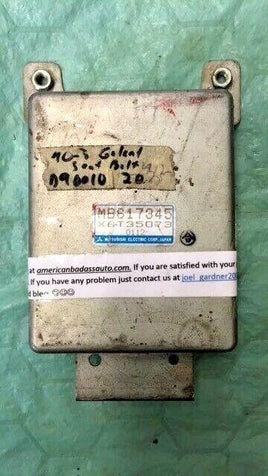 90-3 Galant
Seat Belt
090010 20
MB617345
X6T35073
0112
MITSUBISHI ELECTRIC CORP. JAPAN
at americanbadassauto.com. If you are satisfied with your
If you have any problem just contact us at joel_gardner20
d bless